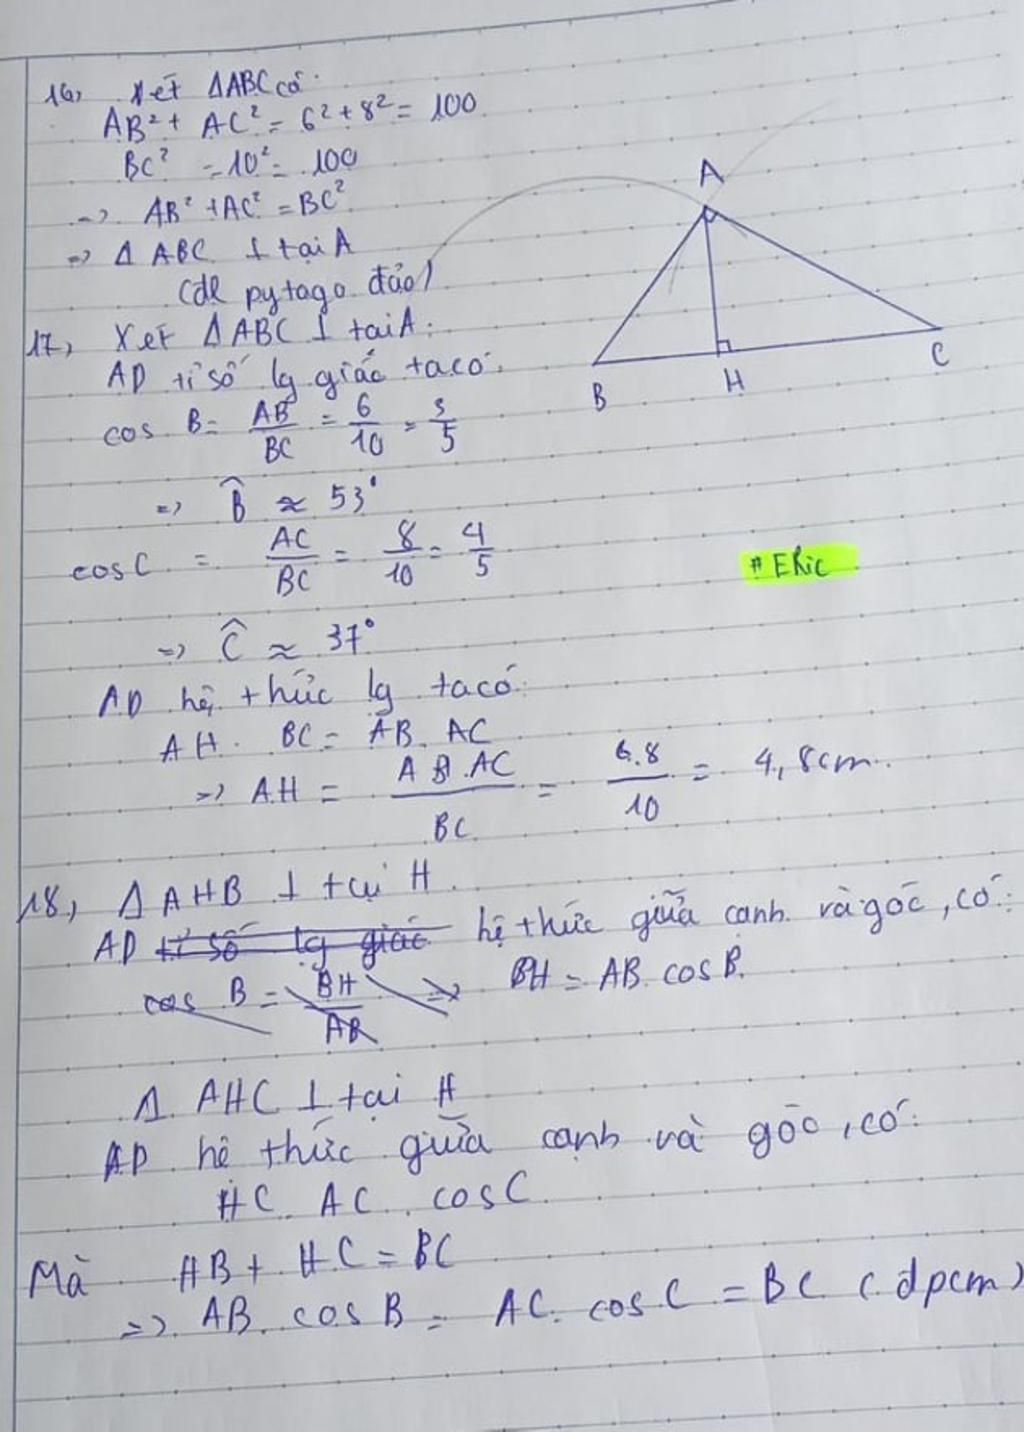 16, Xét ΔABC có:
AB² + AC² = 6² + 8² = 100
BC² = 10² = 100
=> AB² + AC² = BC²
=> Δ ABC ⊥ tại A
(đl pytago đảo)
A
B
H
C
17, Xét ΔABC ⊥ tai A:
AD tỉ số lg giác ta có:
cos B = AB/BC = 6/10 = 3/5
=> B̂ ≈ 53°
cos C = AC/BC = 8/10 = 4/5
# ERic
=> Ĉ ≈ 37°
AD hệ thức lg ta có:
AH . BC = AB . AC
=> AH = AB . AC/BC = 6.8/10 = 4,8cm.
18, Δ AHB ⊥ tại H
AD tỉ số lg giác hệ thức giữa cạnh và góc, có:
cos B = BH/AB => BH = AB . cos B.
Δ AHC ⊥ tại H
AD hê thức giữa cạnh và góc, có:
HC . AC . cos C
Mà HB + HC = BC
=> AB . cos B = AC . cos C = BC (đpcm)